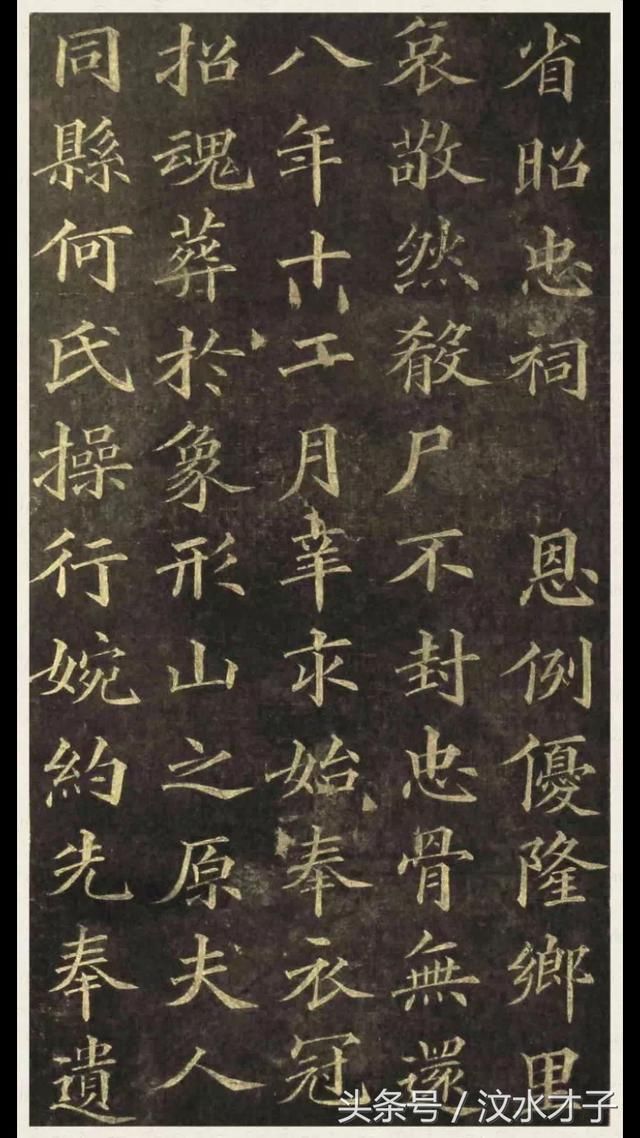 省昭忠祠 恩例優隆鄉里
哀敬然殺尸不封忠骨無還
八年十工月始奉衣冠
招魂葬於象形山之原夫人
同縣何氏操行婉約先奉遺
头条号 / 汶水才子